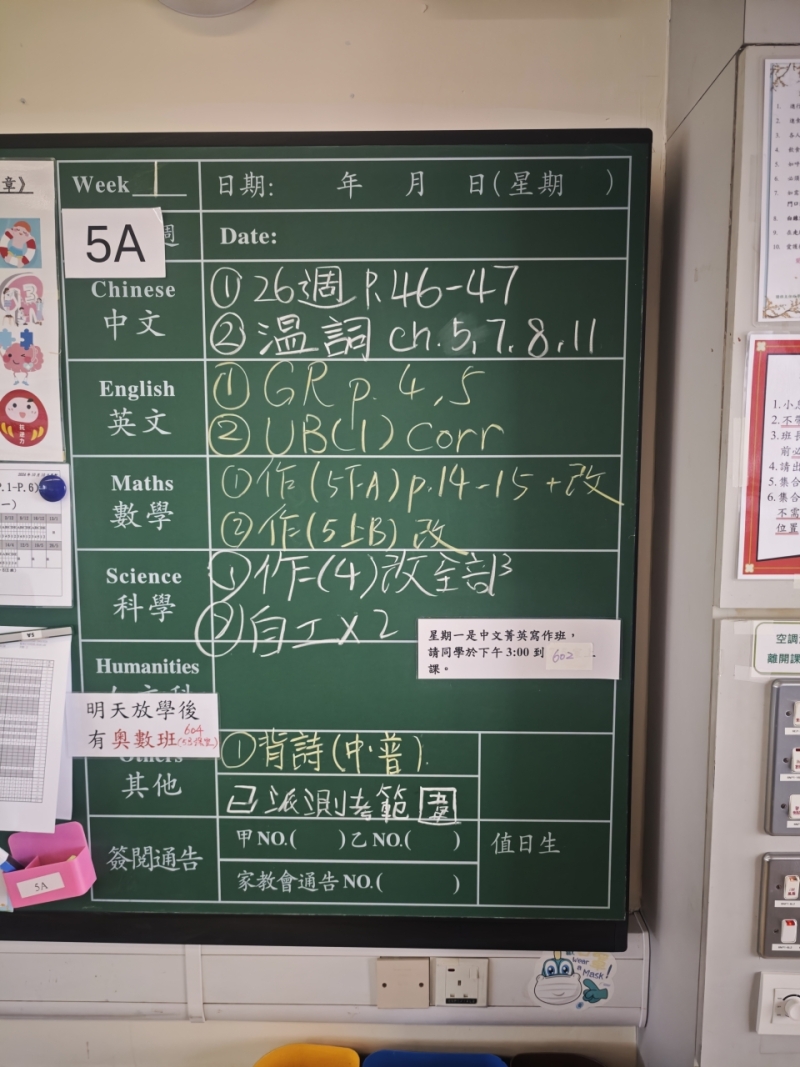 章》
Week 1
日期: 年 月 日(星期 )
5A
週
Date:
Chinese
中文
① 26週 P.46-47
② 温詞 ch.5,7,8,11
English
英文
① GR p. 4,5
② UB(1) corr
Maths
數學
① 作(5下A) p.14-15 + 改
② 作(5上B) 改
Science
科學
① 作(4)改全部
② 自工 x 2
星期一是中文菁英寫作班，
請同學於下午 3:00 到 602
課。
Humanities
明天放學後
有奧數班 604
Others
其他
① 背詩(中.普).
已派測考範圍
簽閱通告
甲 NO.( )乙 NO.( )
家教會通告 NO.( )
值日生
5A
P.1-P.6)
一)
1. 小息
2. 不帶
3. 班長
前必
4. 請出
5. 集合
6. 集合
不需
位置
空調
離開課
wear
a
Mask!